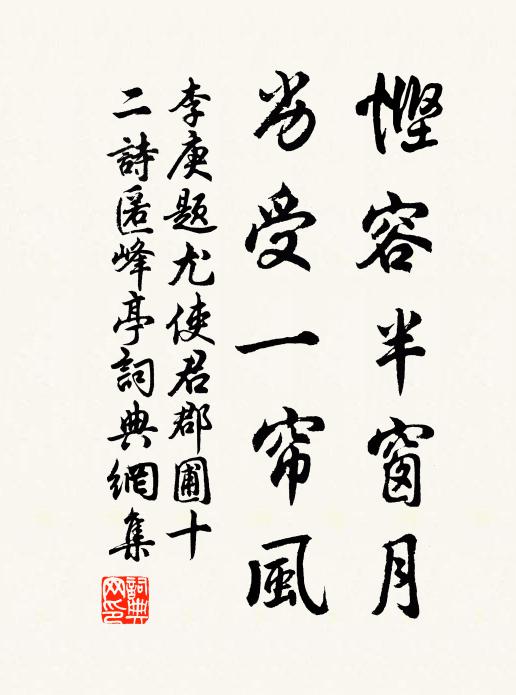 慳容半窗月
劣受一帘風
李庚题尤使君郡圃十
二詩匿峰亭詞典網集
詞典
网印